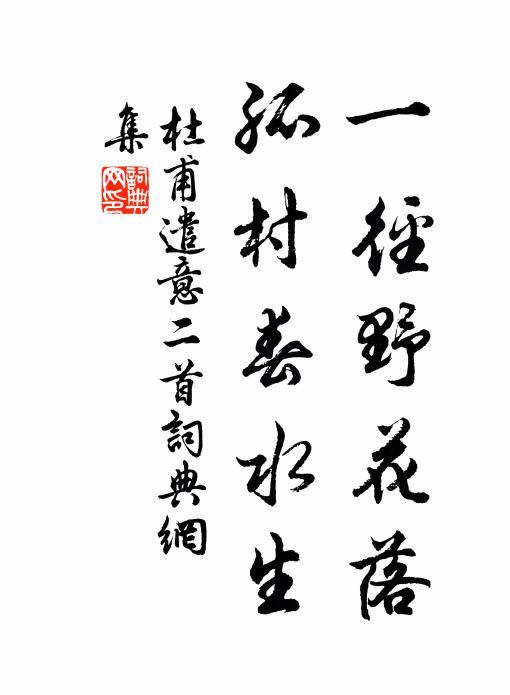 一徑野花落
孤村春水生
杜甫遣意二首詞典網
集
詞典
网印